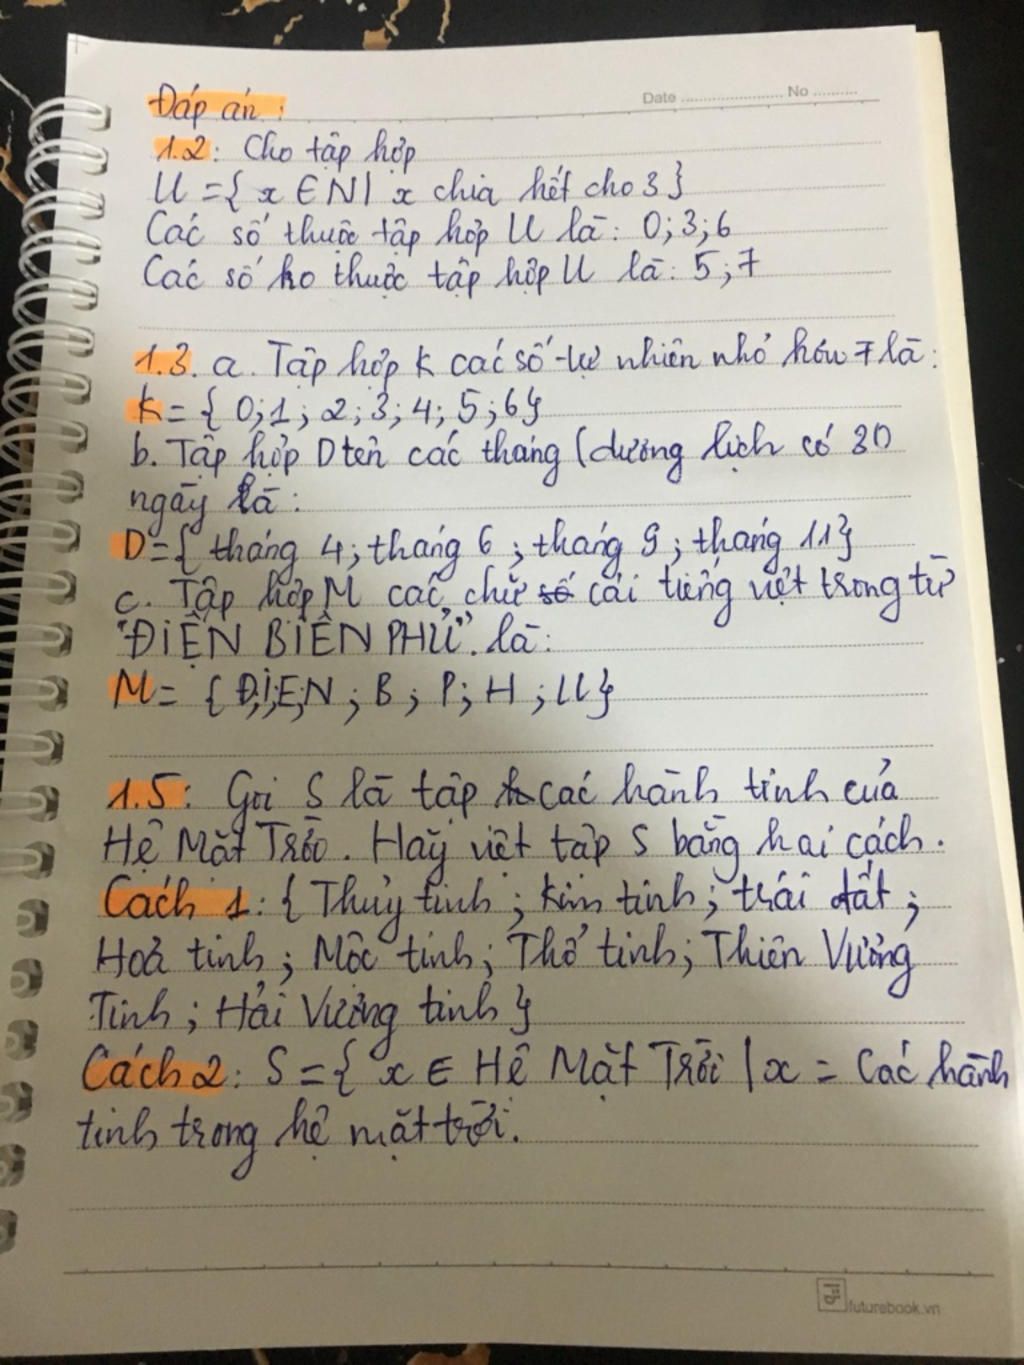 Date ........... No ..........
Đáp án :
1.2: Cho tập hợp
U = { x ∈ N | x chia hết cho 3 }
Các số thuộc tập hợp U là: 0; 3; 6
Các số ko thuộc tập hợp U là: 5; 7
1.3. a. Tập hợp K các số tự nhiên nhỏ hơn 7 là:
K = { 0; 1; 2; 3; 4; 5; 6 }
b. Tập hợp D tên các tháng (dương lịch có 30
ngày là:
D = { tháng 4; tháng 6; tháng 9; tháng 11 }
c. Tập hợp M các chữ số cái tiếng việt trong từ
"ĐIỆN BIÊN PHỦ". là:
M = { Đ; I; Ê; N ; B ; P ; H ; U }
1.5: Gọi S là tập các hành tinh của
Hệ Mặt Trời. Hãy viết tập S bằng hai cách.
Cách 1: { Thủy tinh ; Kim tinh ; trái đất ;
Hoả tinh ; Mộc tinh ; Thổ tinh ; Thiên Vương
Tinh ; Hải Vương tinh }
Cách 2: S = { x ∈ Hệ Mặt Trời | x = Các hành
tinh trong hệ mặt trời.
futurebook.vn